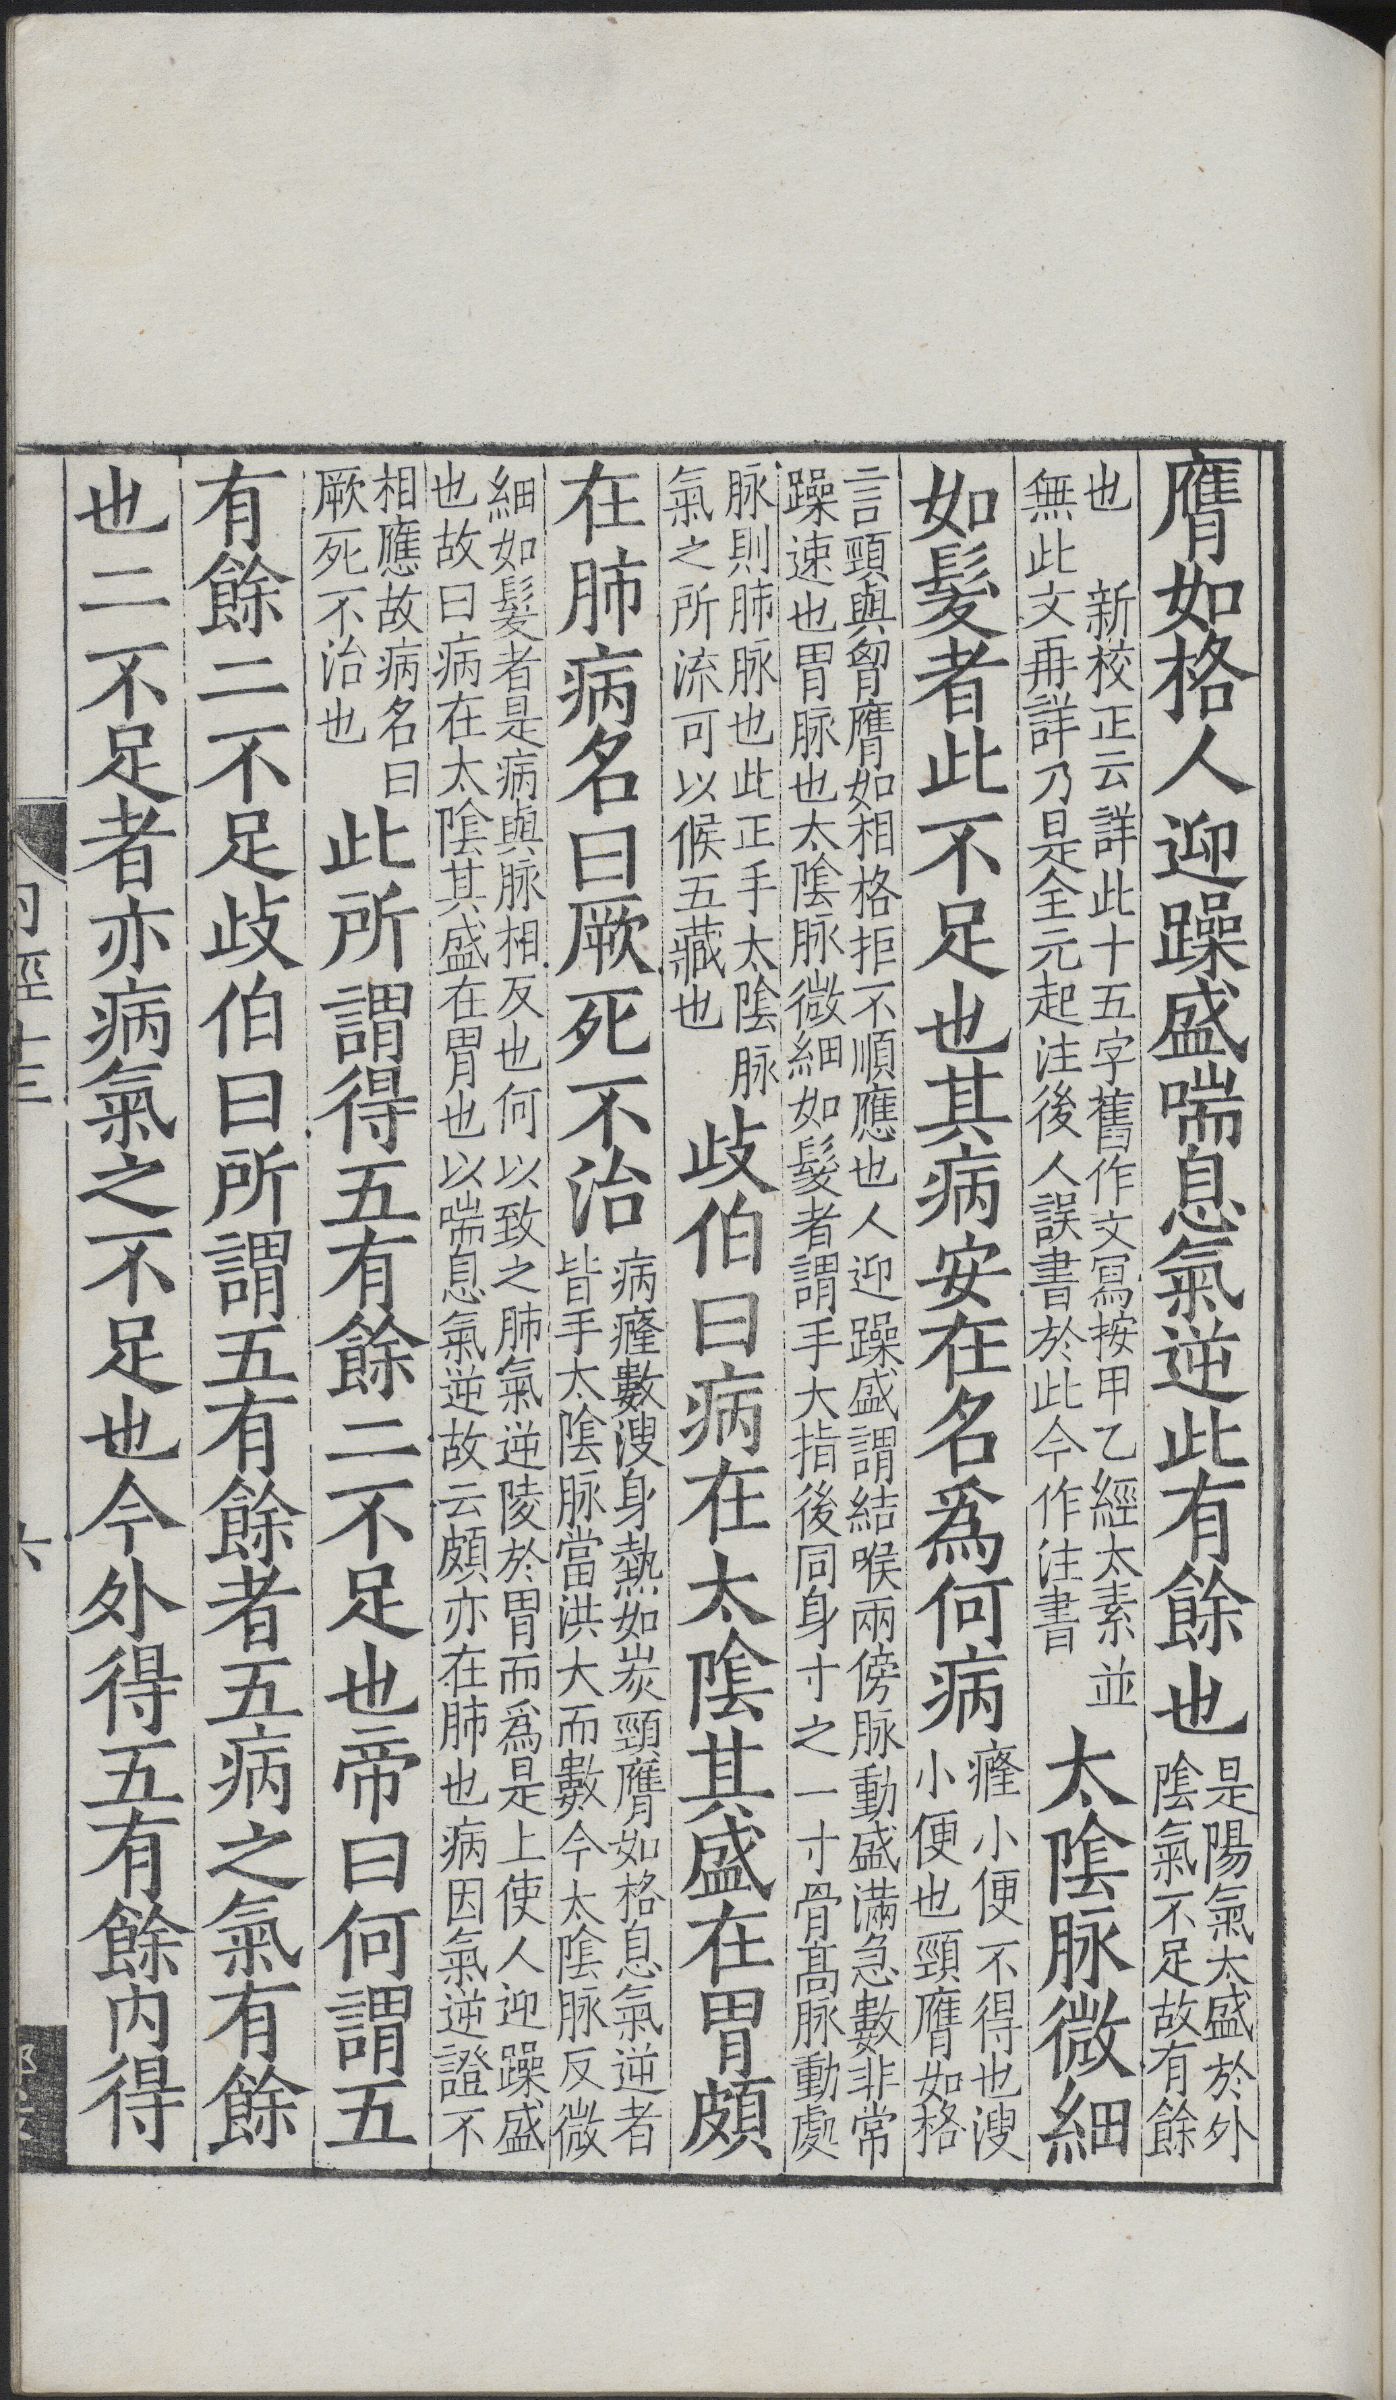 膺如格人迎躁盛喘息氣逆此有餘也是陽氣太盛於外陰氣不足故有餘
也　新校正云詳此十五字舊作文寫按甲乙經太素並無此文再詳乃是全元起注後人誤書於此今作注書太陰脉微細
如髮者此不足也其病安在名爲何病癃小便不得也溲小便也頸膺如格
言頸與胷膺如相格拒不順應也人迎躁盛謂結喉兩傍脉動盛滿急數非常躁速也胃脉也太陰脉微細如髮者謂手大指後同身寸之一寸骨髙脉動處
脉則肺脉也此正手太陰脉氣之所流可以候五藏也歧伯曰病在太陰其盛在胃頗
在肺病名曰厥死不治病癃數溲身熱如炭頸膺如格息氣逆者皆手太陰脉當洪大而數今太陰脉反微
細如髮者是病與脉相反也何以致之肺氣逆陵於胃而爲是上使人迎躁盛也故曰病在太陰其盛在胃也以喘息氣逆故云頗亦在肺也病因氣逆證不
相應故病名曰厥死不治也此所謂得五有餘二不足也帝曰何謂五
有餘二不足歧伯曰所謂五有餘者五病之氣有餘
也二不足者亦病氣之不足也今外得五有餘内得
内經十三
六